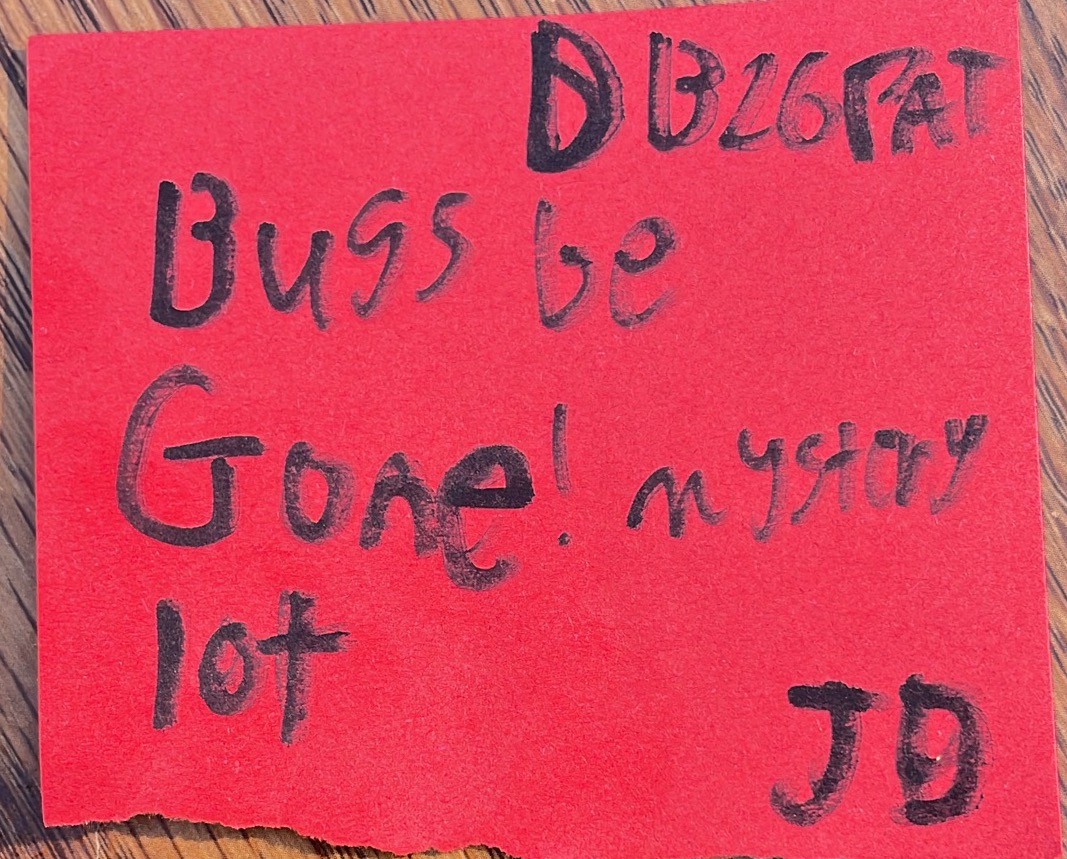 DB26PAT
Bugs be
Gone! mystery
lot
JD